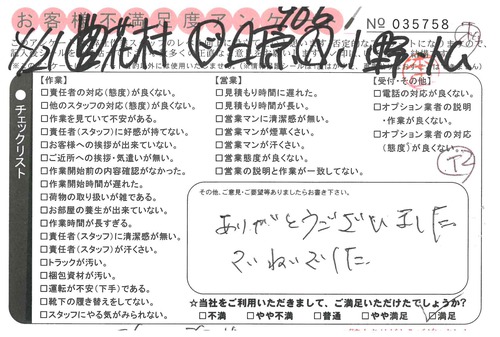 お客様不満足度
№ 035758
チェックリスト
【作業】
□責任者の対応(態度)が良くない。
□他のスタッフの対応(態度)が良くない。
□作業を見ていて不安がある。
□責任者(スタッフ)に好感が持てない。
□お客様への挨拶が出来ていない。
□ご近所への挨拶・気遣いが無い。
□作業開始前の内容確認がなかった。
□作業開始時間が遅れた。
□荷物の取り扱いが雑である。
□お部屋の養生が出来ていない。
□作業時間が長すぎる。
□責任者(スタッフ)に清潔感が無い。
□責任者(スタッフ)が汗くさい。
□トラックが汚い。
□梱包資材が汚い。
□運転が不安(下手)である。
□靴下の履き替えをしてない。
□スタッフにやる気がみられない。
【営業】
□見積もり時間に遅れた。
□見積もり時間が長い。
□営業マンに清潔感が無い。
□営業マンが煙草くさい。
□営業マンが汗くさい。
□営業態度が良くない。
□営業の説明と作業が一致してない。
【受付・その他】
□電話の対応が良くない。
□オプション業者の説明
・作業が良くない。
□オプション業者の対応
(態度)が良くない。
その他、ご意見・ご要望等ありましたらお書き下さい。
ありがとうございました
ていねいでした
☆当社をご利用いただきまして、ご満足いただけたでしょうか?
□不満 □やや不満 □普通 □やや満足 □満足